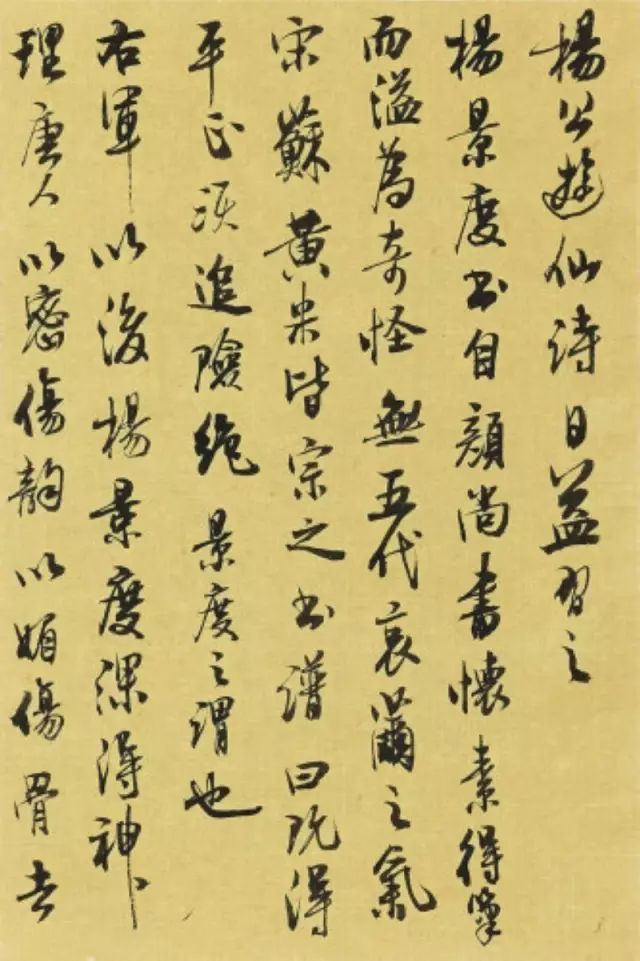 楊公遊仙詩日益習之
楊景度書自顏尚書懷素得筆
而溢為奇怪無五代衰薾之氣
宋蘇黃米皆宗之書譜曰既得
平正須追險絕景度之謂也
右軍以後楊景度深得神
理唐人以密傷韻以媚傷骨去